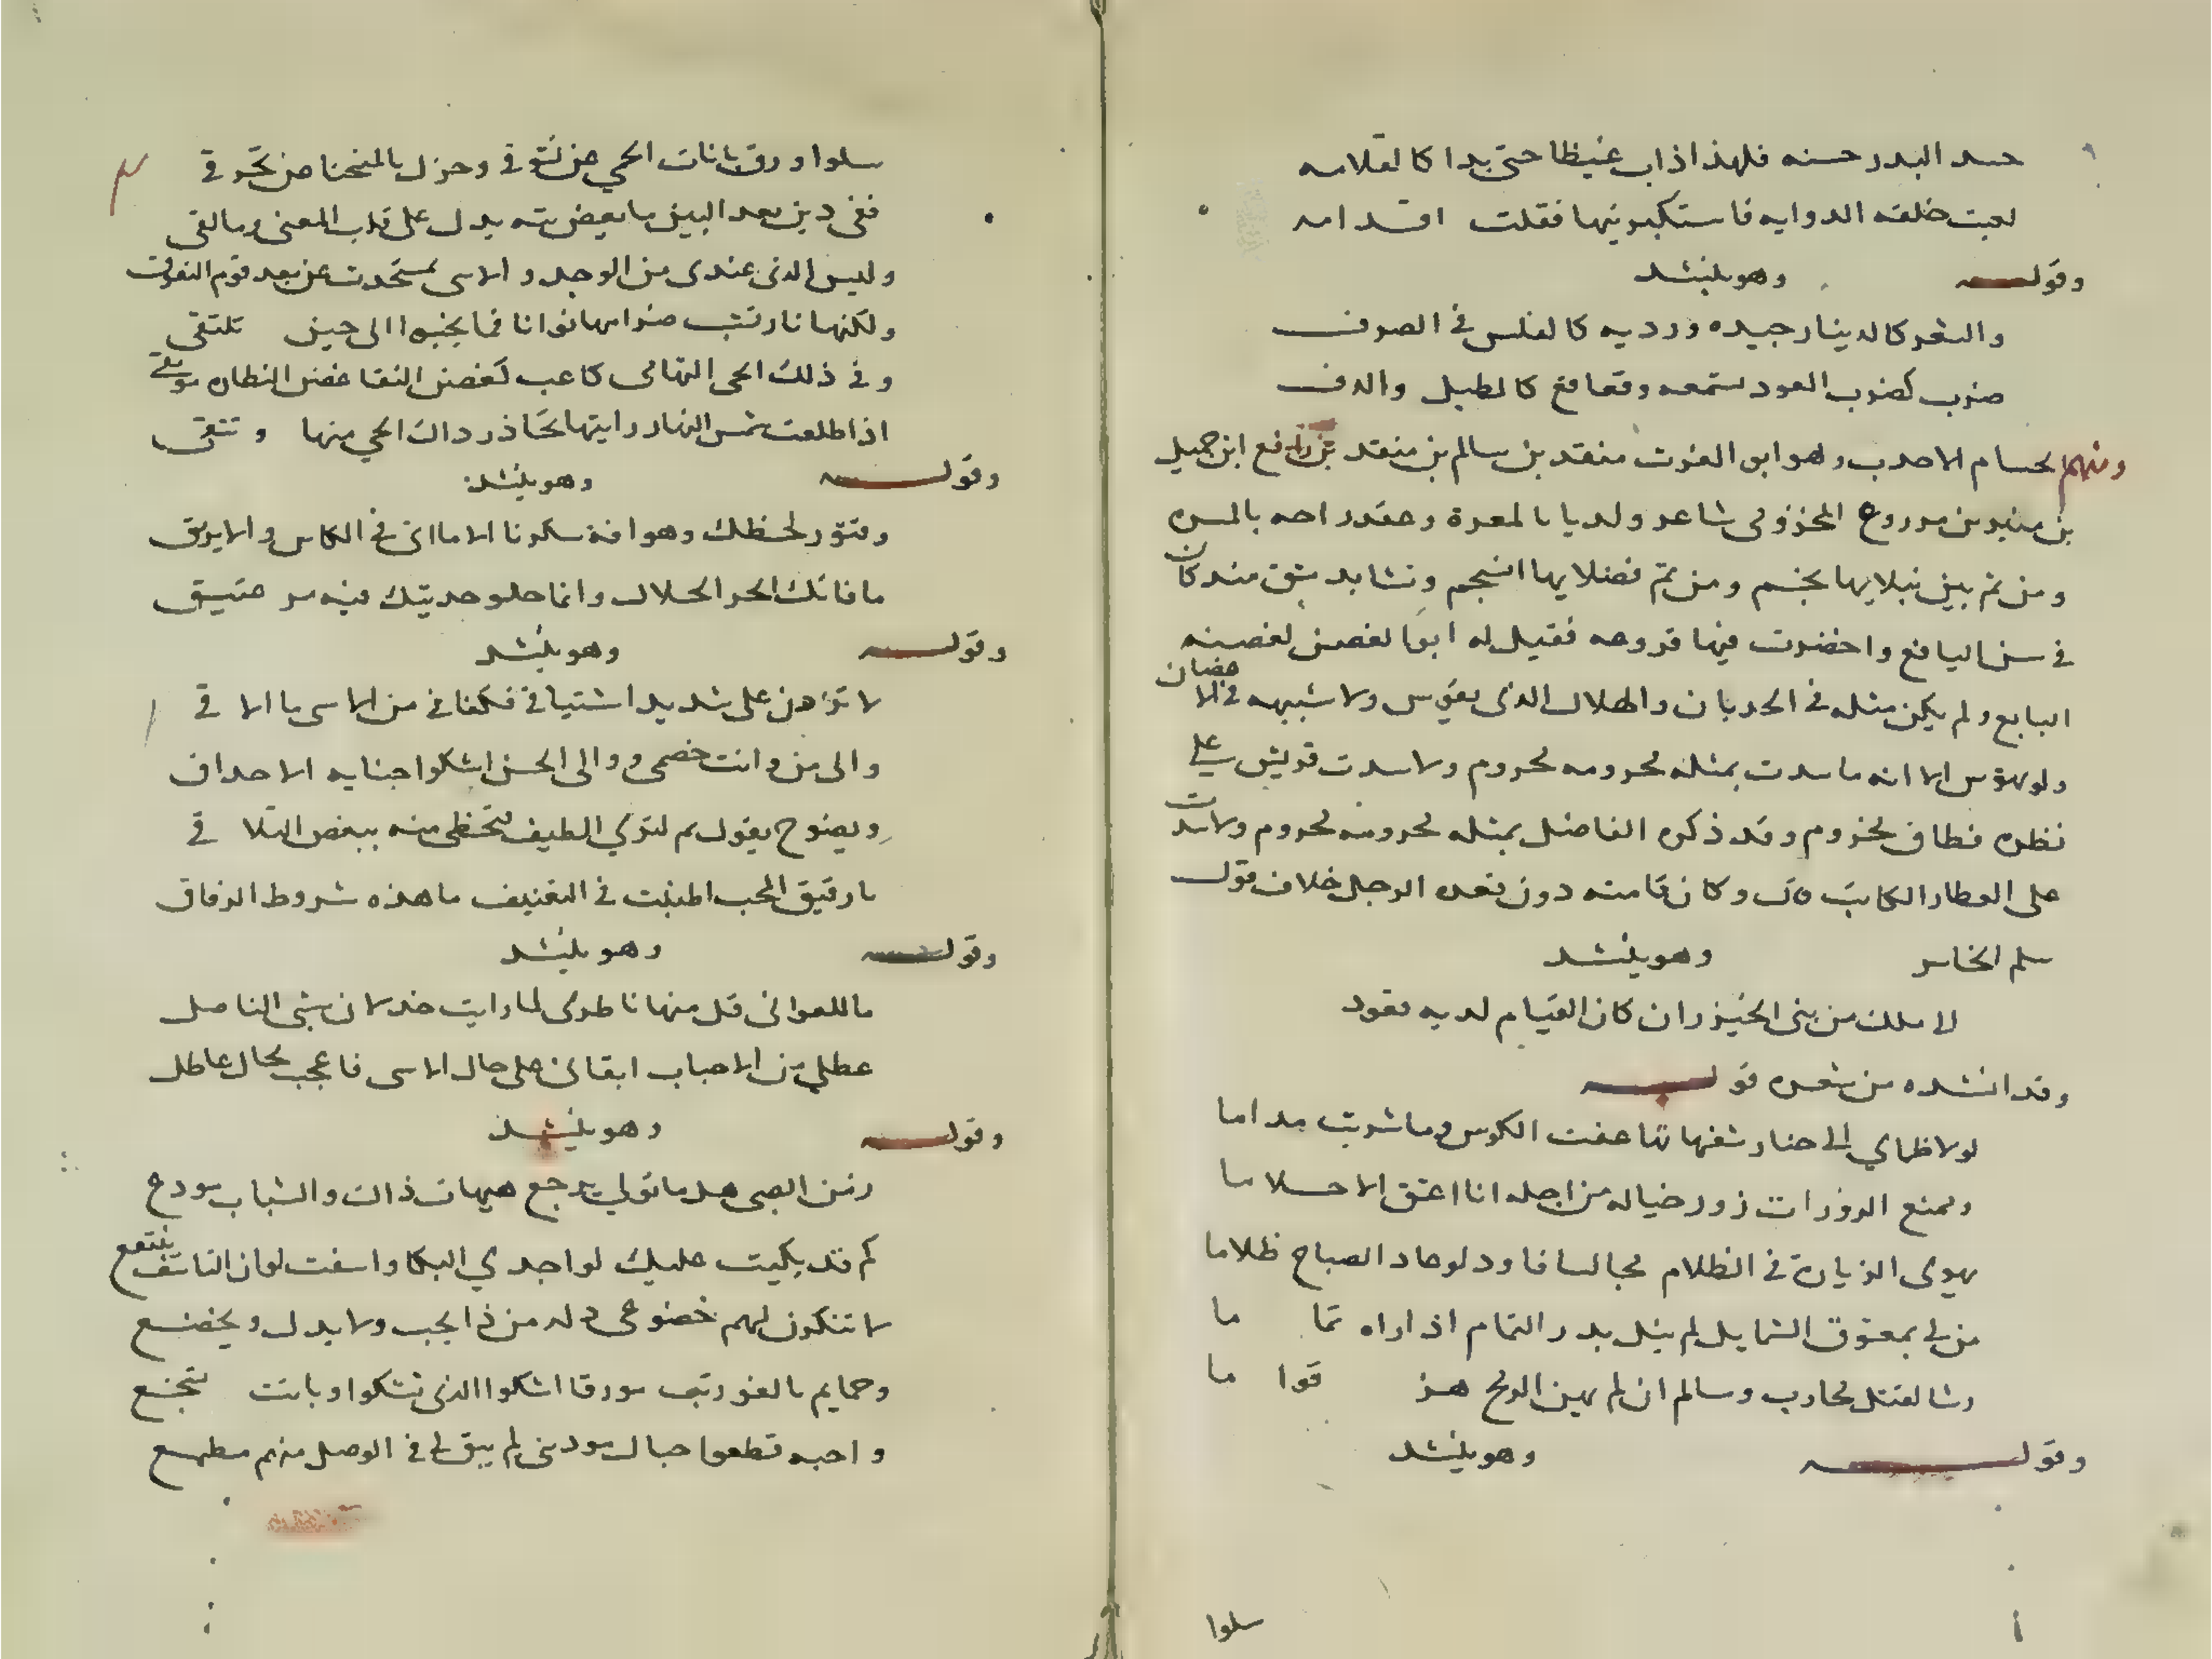 حسد البدر حسنه فلهذا ذاب غيظا حتى بدا كالقلامه
لعبت خلفه الدوايه فاستكبرنيها فقلت اقدامه
وقوله وهو ينشد
والشعر كالدينار جيده ورديه كالفلس في الصرف
ضرب كضرب العود تسمعه وقعاقع كالطبل والدف
ومنهم حسام الاحدب وهو ابو الغوث منقد بن سالم بن منقد بن رافع ابن جميل
بن منير بن مزروع المخزومي شاعر ولد يا بالمعرة وعقد راحه بالمسره
ومن ثم بين نبلايها نجم ومن ثم فضلايها انسجم ونشا بد مشق منذ كان
في سن اليافع واحضرت فيها فروعه فقيل له ابوالغصن لغصنه
اليابع ولم يكن مثله في الحدبان والهلال الذي يقوس ولا شبيهه في الاغصان
ولو يهوس الا انه ما سدت بمثله محرومه محروم ولا سدت قريش على
نظره فطاف مخزوم وقد ذكره الفاضل بمثله محرومه محروم ولا سدت
على العطار الكاتب وكان قامته دون قعده الرجل خلاف قول
سلم الخاسر وهو ينشد
لا ملك من بنى الخيزران كان القيام لديه قعود
وقد انشده من شعره قوله
لولا ظماي الى حنا رشفها تنا عفت الكوس وما شربت مداما
ويمنع الزورات زور خياله من اجله انا اعشق الاحلاما
يهوى الزيارة في الظلام مجالسا فاود لو عاد الصباح ظلاما
من لي بمعشوق الشمايل لم ينل بدر التمام اذا راه تماما
رشا لقتل محارب وسالم ان لم يهن الرمح هز قواما
وقوله وهو ينشد
سلوا
سلوا ورق بانات الحمى عن تشوقي وحزل بالمنحنا من تحرقي
ففي دين بعد البين ما بعض بثه يدل على قلب المعنى وما لقى
وليس الذي عندي من الوجد والاسى بمستحدث عن بعد قوم التفرق
ولكنها نار تشب ضرامها نوانا فما يخبوا الى حين نلتقي
وفي ذلك الحى التهامى كاعب كغصن النقا غضن النطاق موثق
اذا طلعت شمس النهار رايتها تحاذر داك الحى منها وتتقى
وقوله وهو ينشد
وفتور لحظك وهو افة سكرنا الا ما اتى في الكاس والابريق
ما فاتك الحر الحلال وانما حلو حديثك فيه سر عتيق
وقوله وهو ينشد
لا تزدن على شديد اشتياقي فكفاني من الاسى ما الاقي
والى من وانت خصمى ووالى الحسن اشكوا جنايه الاحداق
ويضوح يقول بم لترك الطيف لتحظى منه ببعض التلاقي
يا رفيق المحب المبلت في التعنيف ما هذه شروط الرفاق
وقوله وهو ينشد
ما للغواني قل منها ناطرى لما رايت خدلان شيبى الناصل
عطلي من الاحباب ابقاني على حال الاسى فاعجب لحال عاطل
وقوله وهو ينشد
زمن الصبى هل ما تولى يرجع هيهات ذاك والشباب مودع
كم قد بكيت عليك لو اجدي البكا واسفت لو ان التاسف ينفع
لا تنكرون لهم خضوعى وله من ذا يحب ولا يدل ويخضع
وحمايم بالغور تبد مورقا اشكوا الذي تشكوا وباتت تسجع
واحبه قطعوا حبال مودتى لم يبق لى في الوصل منهم مطمع